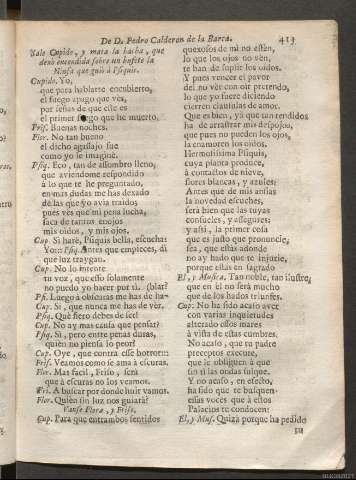 De D. Pedro Calderon de la Barca. 413
Sale Cupido, y mata la hacha, que
dexò encendida sobre un bufete la
Ninfa que guiò à Psiquis.
Cupido. Yo,
que para hablarte encubierto,
el fuego apago que ves,
por señas de que este es
el primer fuego que he muerto,
Fris. Buenas noches.
Flor. No tan bueno
el dicho agasajo fue
como yo le imaginè.
Psiq. Eco, tan de assombro lleno,
que aviendome respondido
à lo que te he preguntado,
en mas dudas me has dexado
de las que yo avia traìdos
pues vès que mi pena lucha,
saca de tantos enojos
mis oìdos, y mis ojos.
Cup. Si harè, Psiquis bella, escucha:
Yo::: Psiq. Antes que empieces, dì
que luz traygan.
Cup. No lo intente
tu voz, que esso solamente
no puedo yo hacer por tì. (blar?
Psi. Luego à obscuras me has de ha-
Cup. Si, que nunca me has de vèr.
Psiq. Què fiero debes de ser!
Cup. No ay mas causa que pensar?
Psiq. Si, pero entre penas duras,
quien no piensa lo peor?
Cup. Oye, que contra esse horror:::
Fris. Veamos como se ama à escuras.
Flor. Mas facil, Friso, serà
que à escuras no los veamos.
Fri. A buscar por donde huir vamos.
Flor. Quièn sin luz nos guiarà?
Vanse Flora, y Friso.
Cup. Para que entrambos sentidos
quexosos de mì no estèn,
lo que los ojos no vèn,
te han de suplir los oìdos.
Y pues vencer el pavor
del no vèr con oìr pretendo,
lo que yo fuere diciendo
cierren clausulas de amor.
Que es bien, yà que tan rendidos
ha de arrastrar mis despojos,
que pues no pueden los ojos,
la enamoren los oìdos.
Hermosissima Psiquis,
cuya planta produce,
à contactos de nieve,
flores blancas, y azules:
Antes que de mis ansias
la novedad escuches,
serà bien que las tuyas
consueles, y assegures;
y assi, la primer cosa
que es justo que pronuncie,
sea, que estàs adonde
no ay hado que te injurie,
porque estàs en sagrado
El, y Musica. Tan noble, tan ilustre,
que en èl no serà mucho
que de los hados triunfes.
Cup: No ha sido acaso aver
con varias inquietudes
alterado essos mares
à vista de estas cumbres.
No acaso, que tu padre
preceptos execute,
que le obliguen à que
sin tì las ondas sulque.
Y no acaso, en efecto,
ha sido que te busquen
essas voces que à estos
Palacios te conducen:
El, y Mus. Quizà porque ha pedido
su